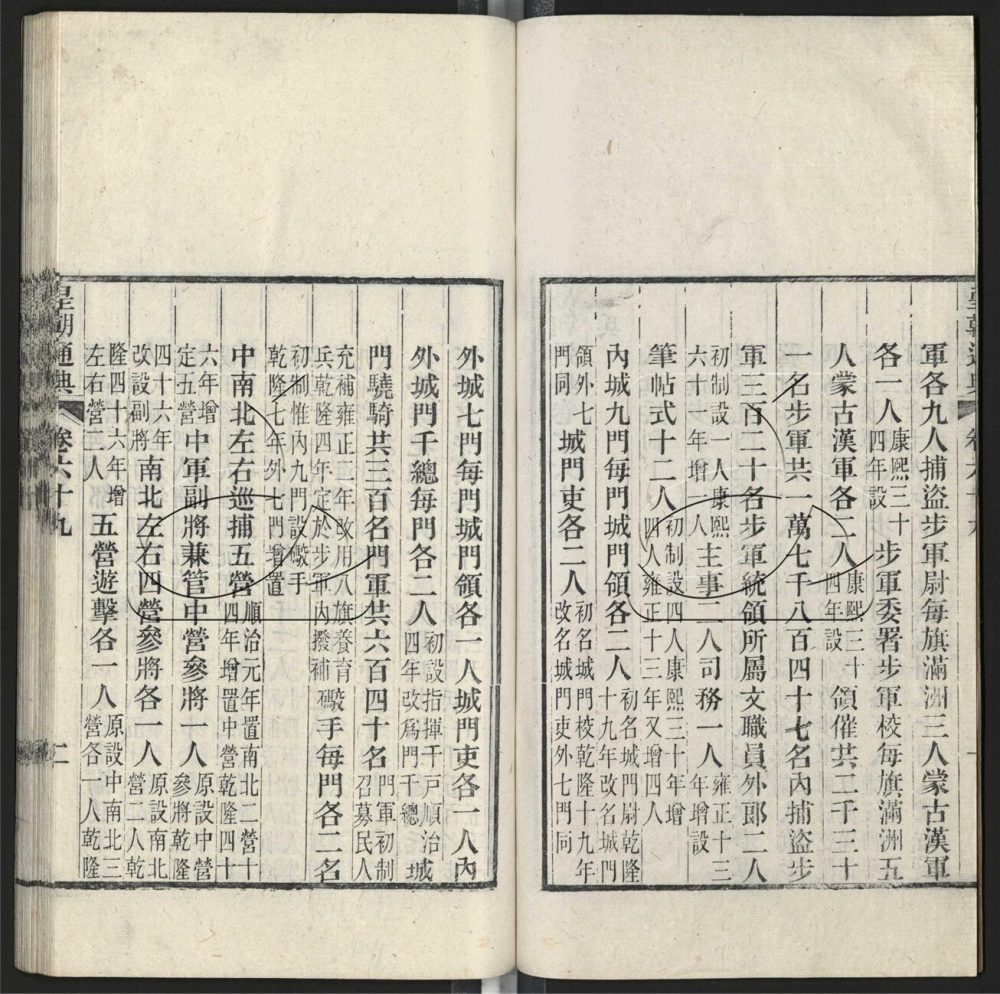 軍各九人捕盜步軍尉每旗滿洲三人蒙古漢軍
各一人康熙三十四年設步軍委署步軍校每旗滿洲五
人蒙古漢軍各二人康熙三十四年設領催共二千三十
一名步軍共一萬七千八百四十七名內捕盜步
軍三百二十名步軍統領所屬文職員外郎二人
初制設一人康熙六十一年增一人主事二人司務一人雍正十三年增設
筆帖式十二人初制設四人康熙三十年增四人雍正十三年又增四人
內城九門每門城門領各二人初名城門尉乾隆十九年改名城門
領外七門同城門吏各二人初名城門校乾隆十九年改名城門吏外七門同
外城七門每門城門領各一人城門吏各一人內
外城門千總每門各二人初設指揮千戶順治四年改爲門千總城
門驍騎共三百名門軍共六百四十名門軍初制召募民人
充補雍正二年改用八旗養育兵乾隆四年定於步軍內撥補礮手每門各二名
初制惟內九門設礮手乾隆七年外七門增置
中南北左右巡捕五營順治元年置南北二營十四年增置中營乾隆四十
六年增定五營中軍副將兼管中營參將一人原設中營參將乾隆
四十六年改設副將南北左右四營參將各一人原設南北營二人乾
隆四十六年增左右營二人五營遊擊各一人原設中南北三營各一人乾隆
皇朝通典 卷六十九 二